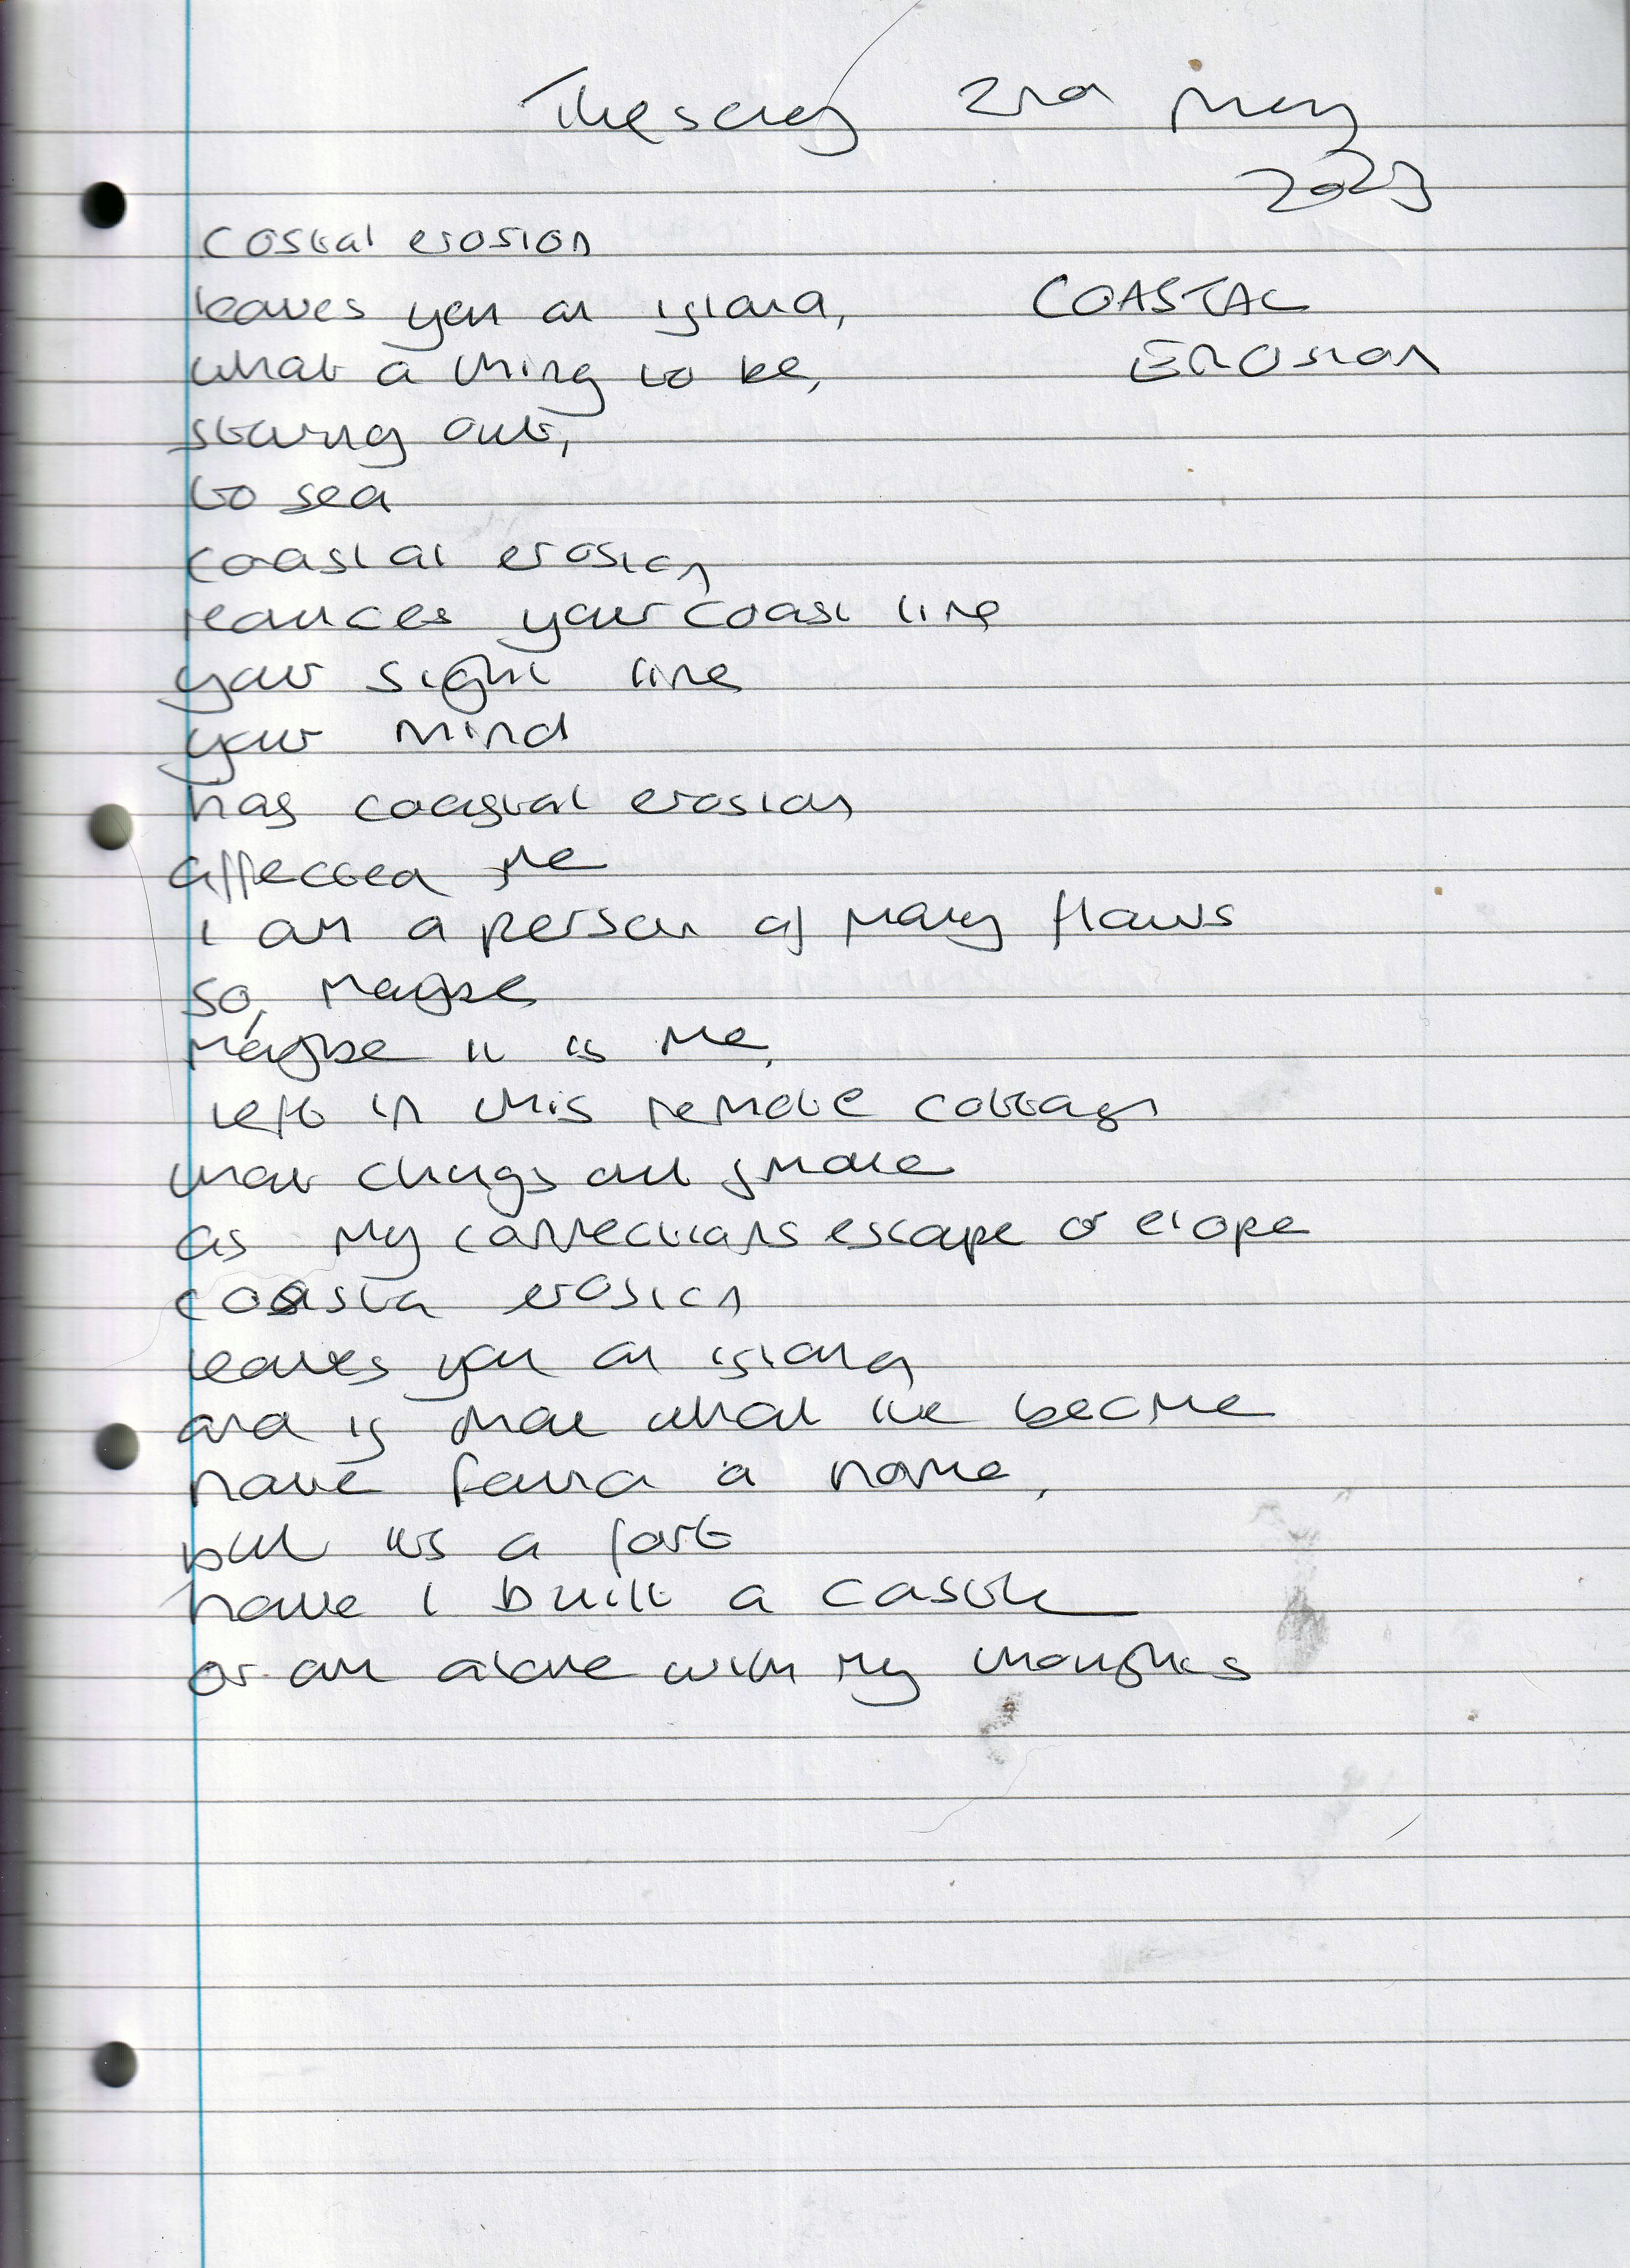 Tuesday 2nd May
2023
costal erosion
leaves you an island,
COASTAL
what a thing to be,
EROSION
staring out,
to sea
coastal erosion
reduces your coast line
your sight line
your mind
has coastal erosion
affected me
I am a person of many flaws
so, maybe
maybe it is me,
left in this remote cottage
that clings out
as my connections escape or elope
coasta erosion
leaves you an island
and is that what I've become
have found a home,
but its a fort
have I built a castle
or am alone with my thoughts